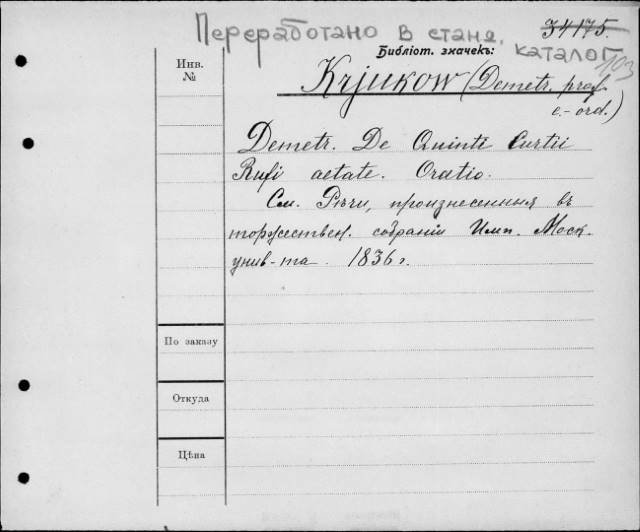 34175.
Переработано в станд.
каталог
Библіот. значекъ:
103
Инв.
№
Krjukow (Demetr. prof.
e.-ord.)
Demetr. De Quinti Curtii
Rufi aetate. Oratio.
См. Рѣчи, произнесенныя въ
торжествен. собраніи Имп. Моск.
унив-та. 1836 г.
По заказу
Откуда
Цѣна